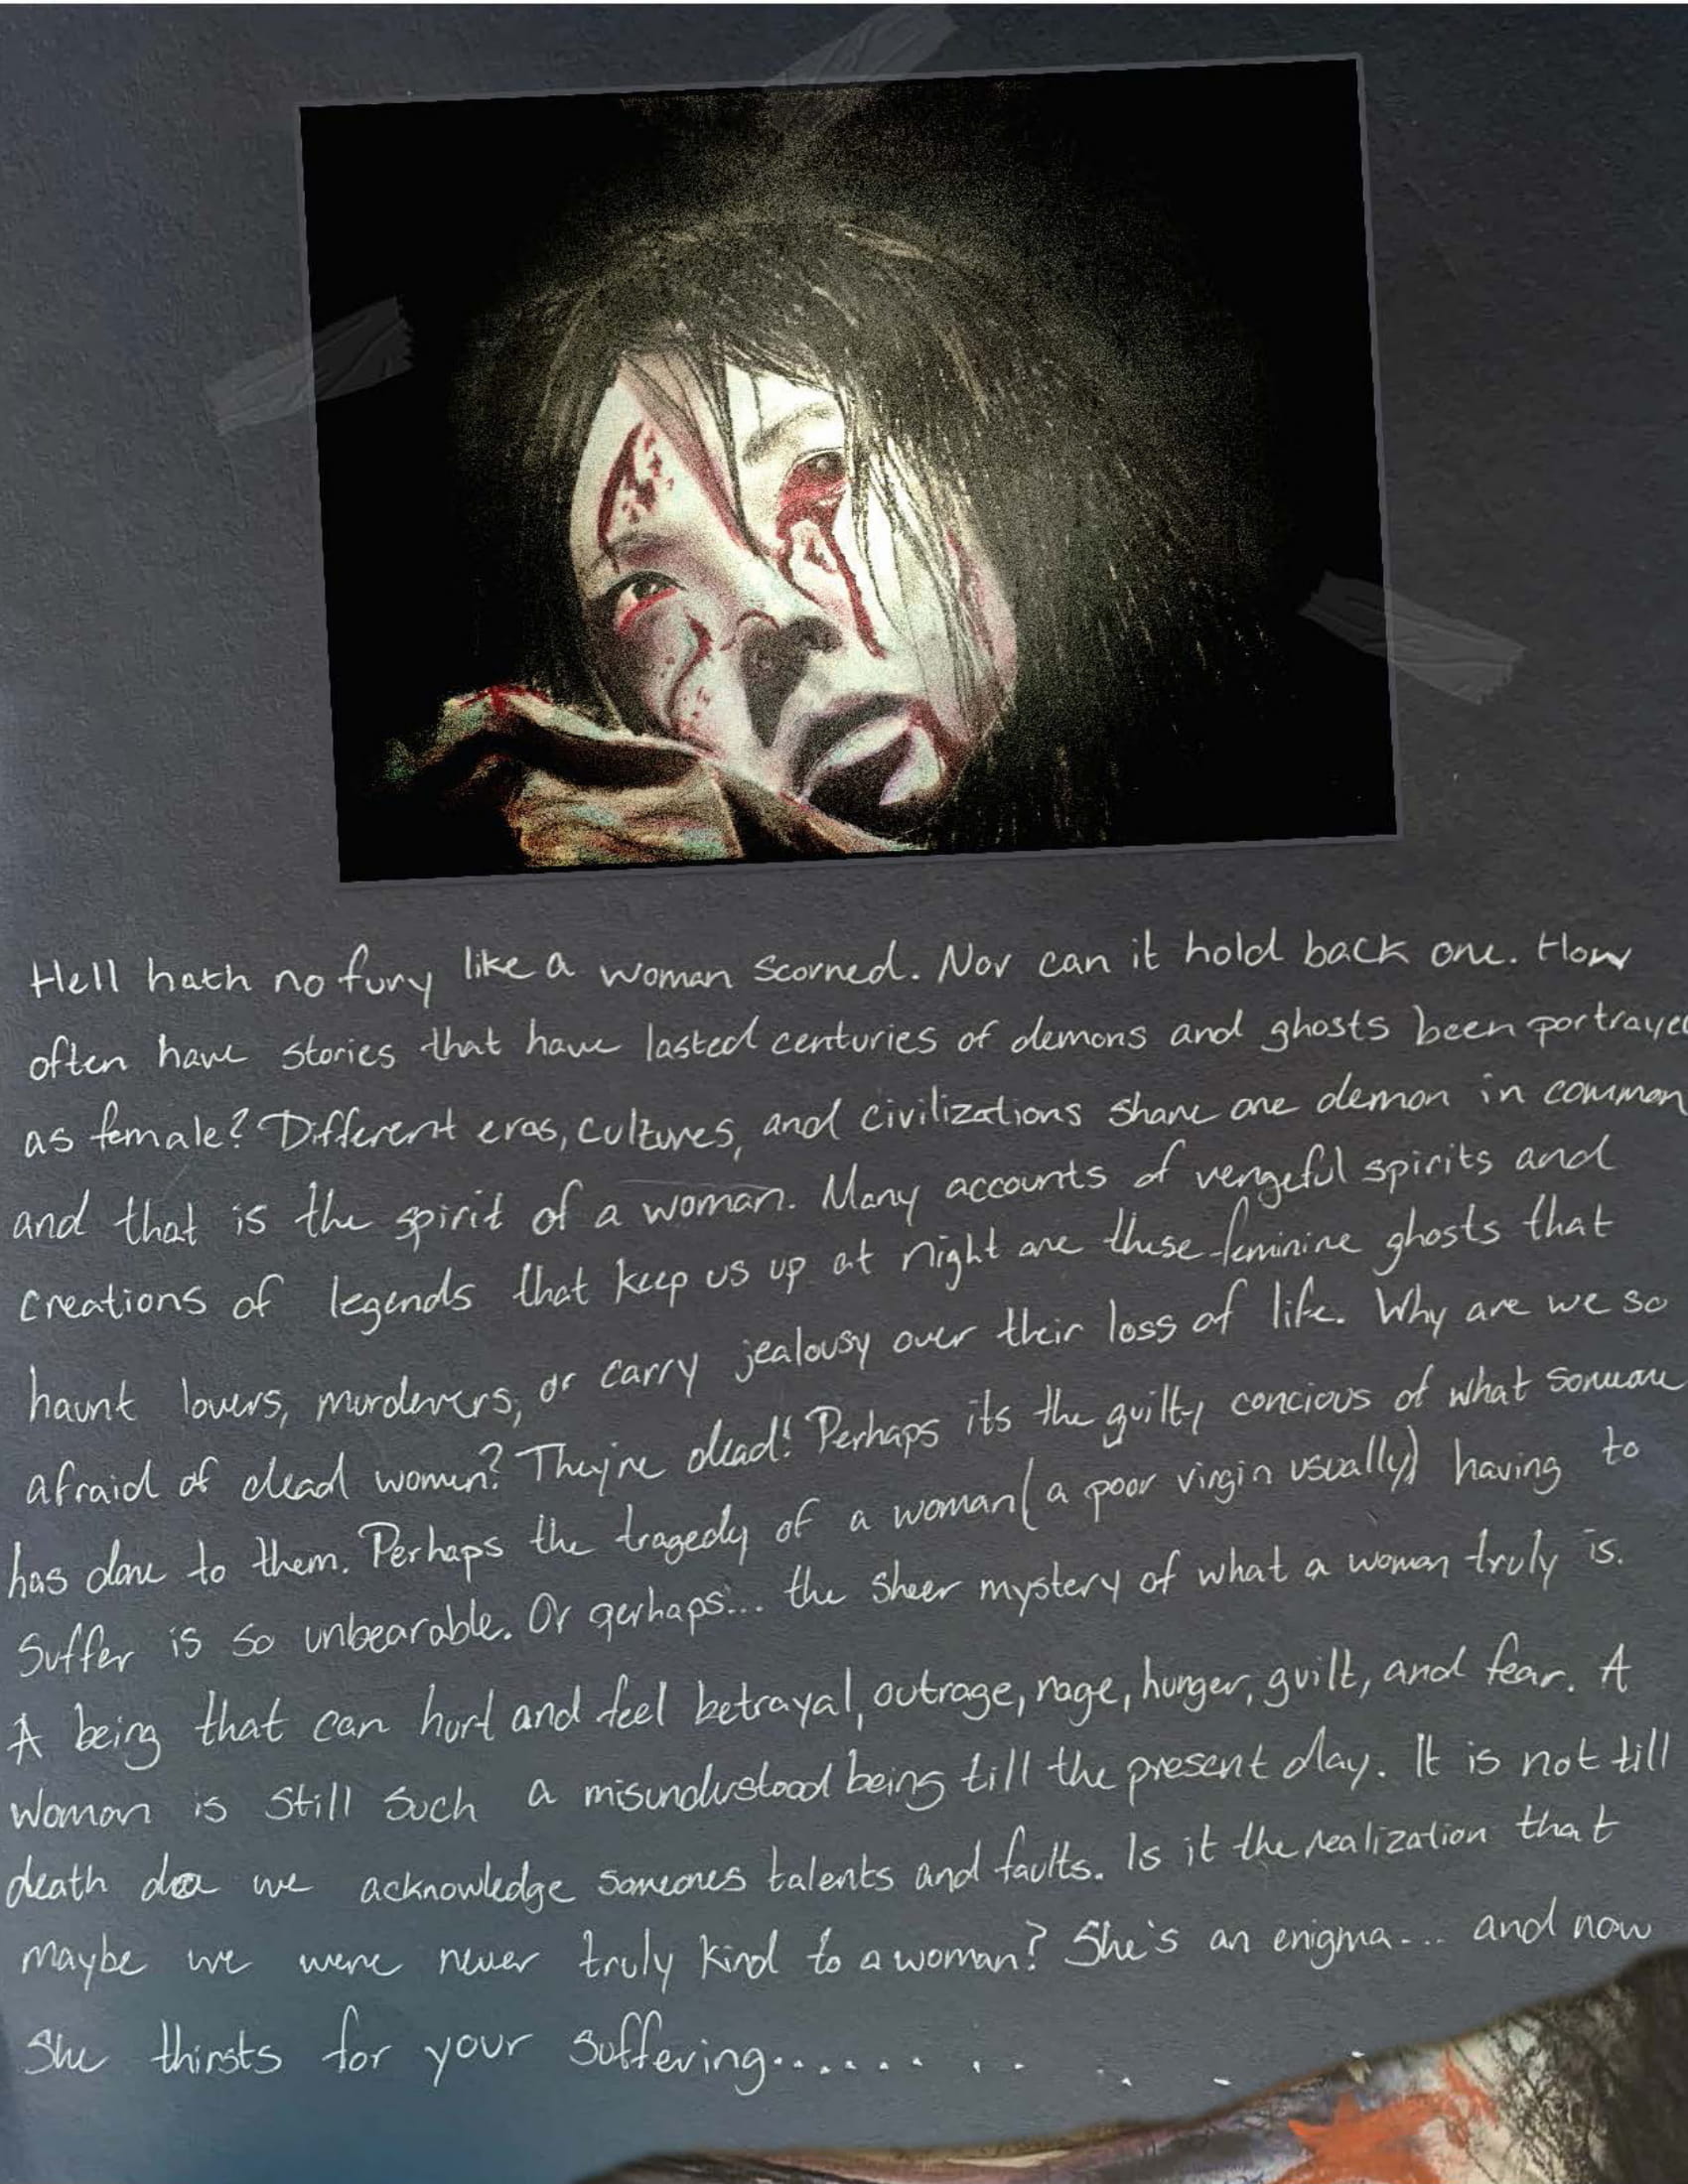 Hell hath no fury like a woman scorned. Nor can it hold back one. How
often have stories that have lasted centuries of demons and ghosts been portrayed
as female? Different eras, cultures, and civilizations share one demon in common
and that is the spirit of a woman. Many accounts of vengeful spirits and
creations of legends that keep us up at night are these feminine ghosts that
haunt lovers, murderers, or carry jealousy over their loss of life. Why are we so
afraid of dead women? They're dead! Perhaps its the guilty concious of what someone
has done to them. Perhaps the tragedy of a woman (a poor virgin usually) having to
suffer is so unbearable. Or perhaps... the sheer mystery of what a woman truly is.
A being that can hurt and feel betrayal, outrage, rage, hunger, guilt, and fear. A
woman is still such a misunderstood being till the present day. It is not till
death do we acknowledge someones talents and faults. Is it the realization that
maybe we were never truly kind to a woman? She's an enigma... and now
she thirsts for your suffering..........